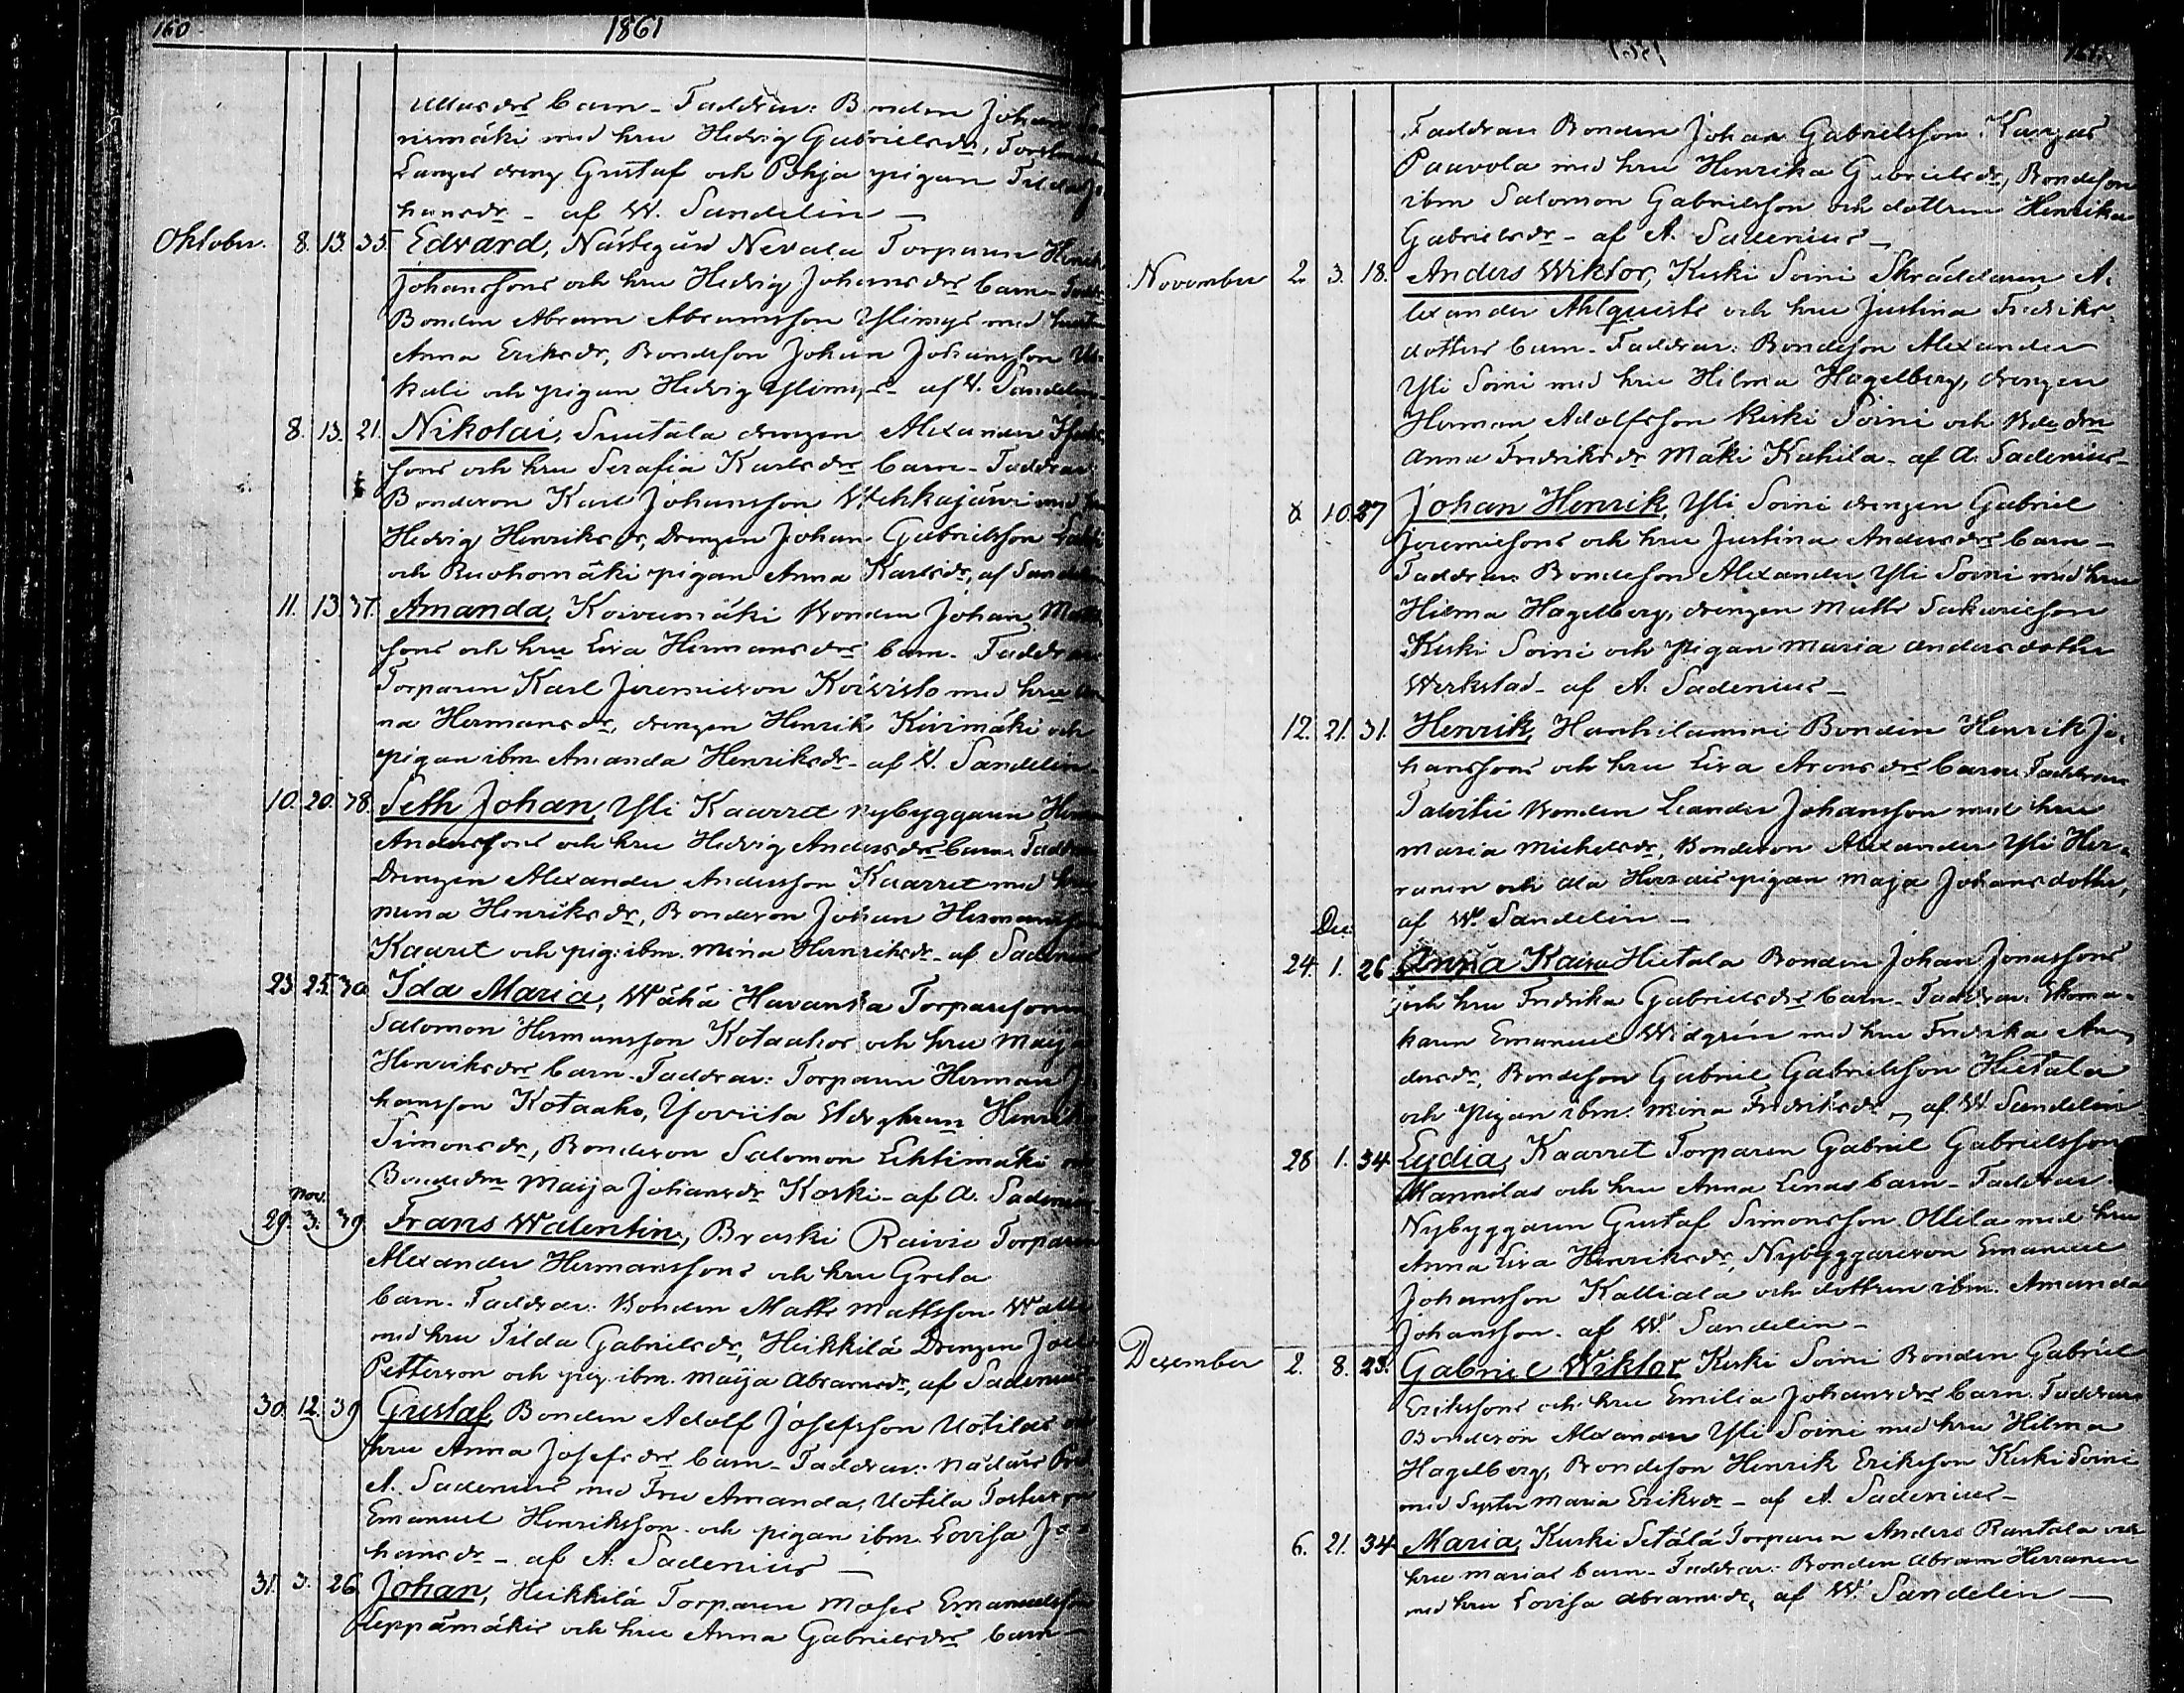 160. 1861
barn - Faddrar: Bonden Johan
nismäki med hru Hedvig Gabrielsdr,
Langes dreng Gustaf och Pohja pigan Tilda Jo
hansdr - af W. Sandelin -
Oktober. 8. 13. 35. Edvard, Nästegård Nevala Torparen Henrik
Johanssons och hru Hedvig Johansdrs barn - Faddr
Bonden Abram Abramsson Ylimys med hustru
Anna Eriksdr, Bondeson Johan Johansson
kali och pigan Hedvig Ylimys - af W. Sandelin -
8. 13. 21. Nikolai, drengen Alexander
sons och hru Serafia Karlsdrs barn - Faddrar
Bondeson Karl Johansson Wehkajärvi med hru
Hedvig Henriksdr, Drengen Johan Gabrielsson
och Ruohomäki pigan Anna Karlsdr, af Sandelin
11. 13. 37. Amanda, Koivumäki Bonden Johan Matts
sons och hru Lisa Hermansdrs barn - Faddrar
Torparen Karl Jeremiesson Koivisto med hru An
na Hermansdr, drengen Henrik Kivimäki och
pigan ibm Amanda Henriksdr - af W. Sandelin -
10. 20. 38. Seth Johan, Yli Kaarret nybyggaren Herman
Anderssons och hru Hedvig Andersdrs barn. Faddrar
Drengen Alexander Andersson Kaarret med hru
Mina Henriksdr, Bondeson Johan Hermansson
Kaaret och pig: ibm. Mina Henriksdr - af Sadenius
23. 25. 30. Ida Maria, Wähä Havanka Torparesonen
Salomon Hermansson Kotaahos och hru Maija
Henriksdrs barn - Faddrar: Torparen Herman Jo
hansson Kotaaho,
Simonsdr, Bondeson Salomon Lehtimäki och
Bondedrn Maija Johansdr Koski - af A. Sadenius
Nov.
29. 3. 39. Frans Walentin, Braski Raivio Torparen
Alexander Hermanssons och hru Greta
barn - Faddrar: Bonden Matts Mattsson
med hru Tilda Gabrielsdr, Heikkilä Drengen
Petterson och pig. ibm. Maija Abramsdr, af Sadenius
30. 12. 39. Gustaf, Bonden Adolf Josefsson Uotilas och
hru Anna Josefsdrs barn - Faddrar:
A. Sadenius med Fru Amanda, Uotila
Emanuel Henriksson och pigan ibm. Lovisa Jo
hansdr - af A. Sadenius -
31. 3. 26. Johan, Heikkilä Torparen Moses Emanuelsson
Leppämäkis och hru Anna Gabrielsdrs barn -
Faddrar Bonden Johan Gabrielsson Kangas
Paavola med hru Henrika Gabrielsdr, Bondeson
ibm Salomon Gabrielsson och dottren Henrika
Gabrielsdr - af A. Sadenius -
November 2. 3. 18. Anders Wiktor, Keski Soini Skräddaren A=
lexander Ahlquists och hru Justina Fredriks=
dotters barn - Faddrar: Bondeson Alexander
Yli Soini med hru Hilma Hagelberg, drengen
Herman Adolfsson Keski Soini och Bdedrn
Anna Fredriksdr Mäki Kahila - af A. Sadenius -
8. 10. 27 Johan Henrik, Yli Soini drengen Gabriel
Jeremiessons och hru Justina Andersdrs barn -
Faddrar Bondeson Alexander Yli Soini med hru
Hilma Hagelberg, drengen Matts Sakariesson
Keski Soini och pigan Maria Andersdotter
Werkstad - af A. Sadenius -
12. 21. 31. Henrik, Hanhilammi Bonden Henrik Jo=
hanssons och hru Lisa Aronsdrs barn Faddrar
Talvitie Bonden Leander Johansson med hru
Maria Michelsdr, Bondeson Alexander Yli Her=
ranen och Ala Herrais pigan Maja Johansdotter,
af W. Sandelin -
Dec:
24. 1. 26. Anna Kaisa Hietala Bonden Johan Jonassons
och hru Fredrika Gabrielsdrs barn - Faddrar: Skoma=
karen Emanuel Widgrén med hru Fredrika An=
dersdr, Bondeson Gabriel Gabrielsson Hietala
och pigan ibm. Mina Fredriksdr, af W. Sandelin
28 1. 34. Lydia, Kaarret Torparen Gabriel Gabrielsson
Mannilas och hru Anna Lenas barn - Faddrar:
Nybyggaren Gustaf Simonsson Ollila med hru
Anna Lisa Henriksdr, Nybyggareson Emanuel
Johansson Kalliala och dottren ibm. Amanda
Johansson. af W. Sandelin -
Desember 2. 8. 23. Gabriel Wiktor Keski Soini Bonden Gabriel
Erikssons och hru Emilia Johansdrs barn. Faddrar
Bondeson Alexander Yli Soini med hru Hilma
Hagelberg, Bondeson Henrik Eriksson Keski Soini
med Syster Maria Eriksdr - af A. Sadenius -
6. 21. 34. Maria, Keski Setälä Torparen Anders Rantala och
hru Marias barn - Faddrar: Bonden Abram Herranen
med hru Lovisa Abramsdr, af W. Sandelin -